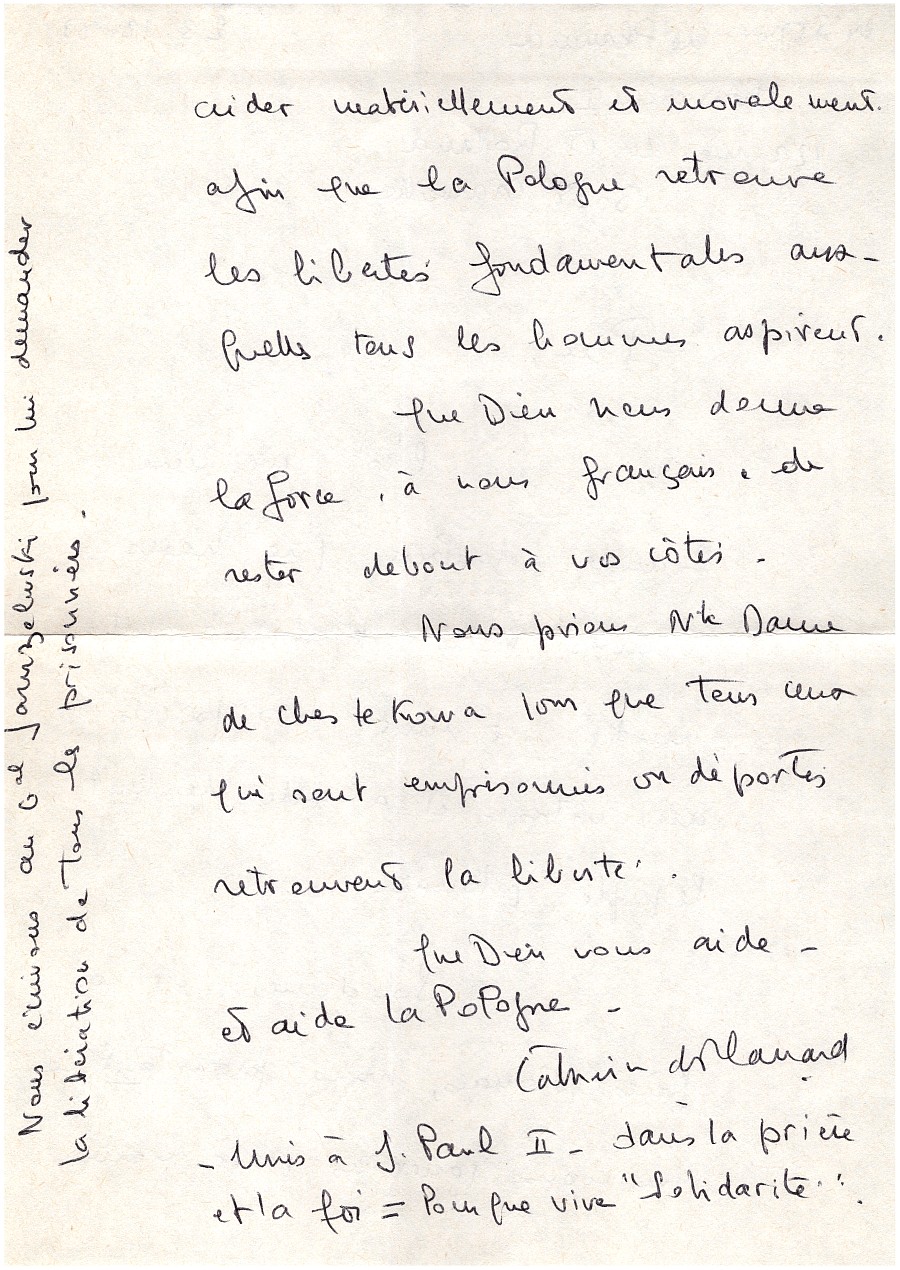 aider matériellement et moralement.
afin que la Pologne retrouve
les libertés fondamentales aux-
quelles tous les hommes aspirent.
Que Dieu nous donne
la force, à nous français, de
rester debout à vos côtés.
Nous prions Nte Dame
de Chestekowa pour que tous ceux
qui sont emprisonnés ou déportés
retrouvent la liberté.
Que Dieu vous aide -
et aide la Pologne -
- Unis à J. Paul II - dans la prière
et la foi = Pour que vive "Solidarité".
Nous écrivons au Gal Jaruzelwski pour lui demander
la libération de tous les prisonniers.